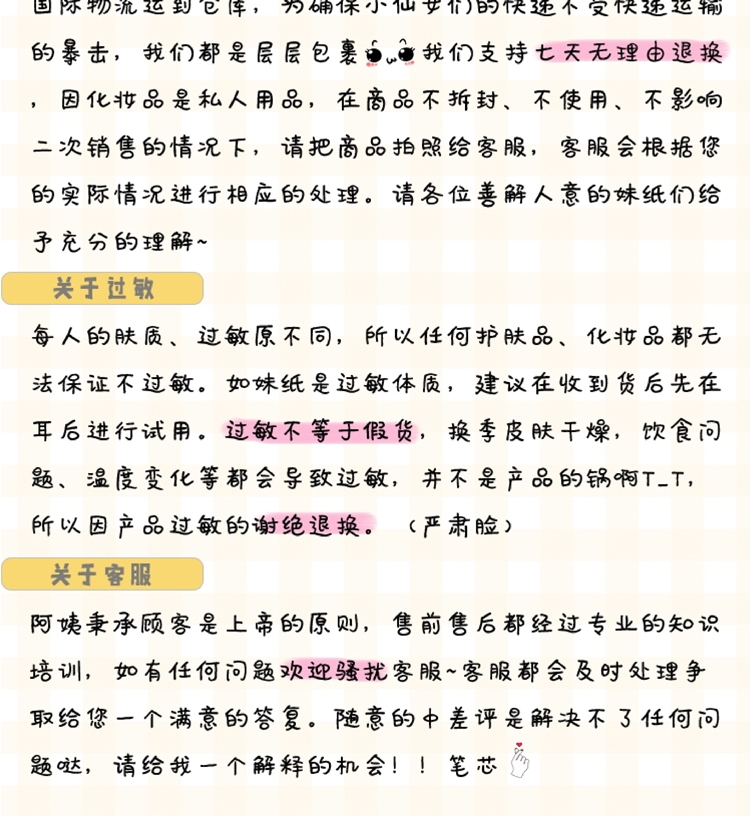 国际物流运到仓库，为确保小仙女们的快递不受快递运输
的暴击，我们都是层层包裹 我们支持七天无理由退换
，因化妆品是私人用品，在商品不拆封、不使用、不影响
二次销售的情况下，请把商品拍照给客服，客服会根据您
的实际情况进行相应的处理。请各位善解人意的妹纸们给
予充分的理解~
关于过敏
每人的肤质、过敏原不同，所以任何护肤品、化妆品都无
法保证不过敏。如妹纸是过敏体质，建议在收到货后先在
耳后进行试用。过敏不等于假货，换季皮肤干燥，饮食问
题、温度变化等都会导致过敏，并不是产品的锅啊T_T，
所以因产品过敏的谢绝退换。（严肃脸）
关于客服
阿姨秉承顾客是上帝的原则，售前售后都经过专业的知识
培训，如有任何问题欢迎骚扰客服~客服都会及时处理争
取给您一个满意的答复。随意的中差评是解决不了任何问
题哒，请给我一个解释的机会！！笔芯